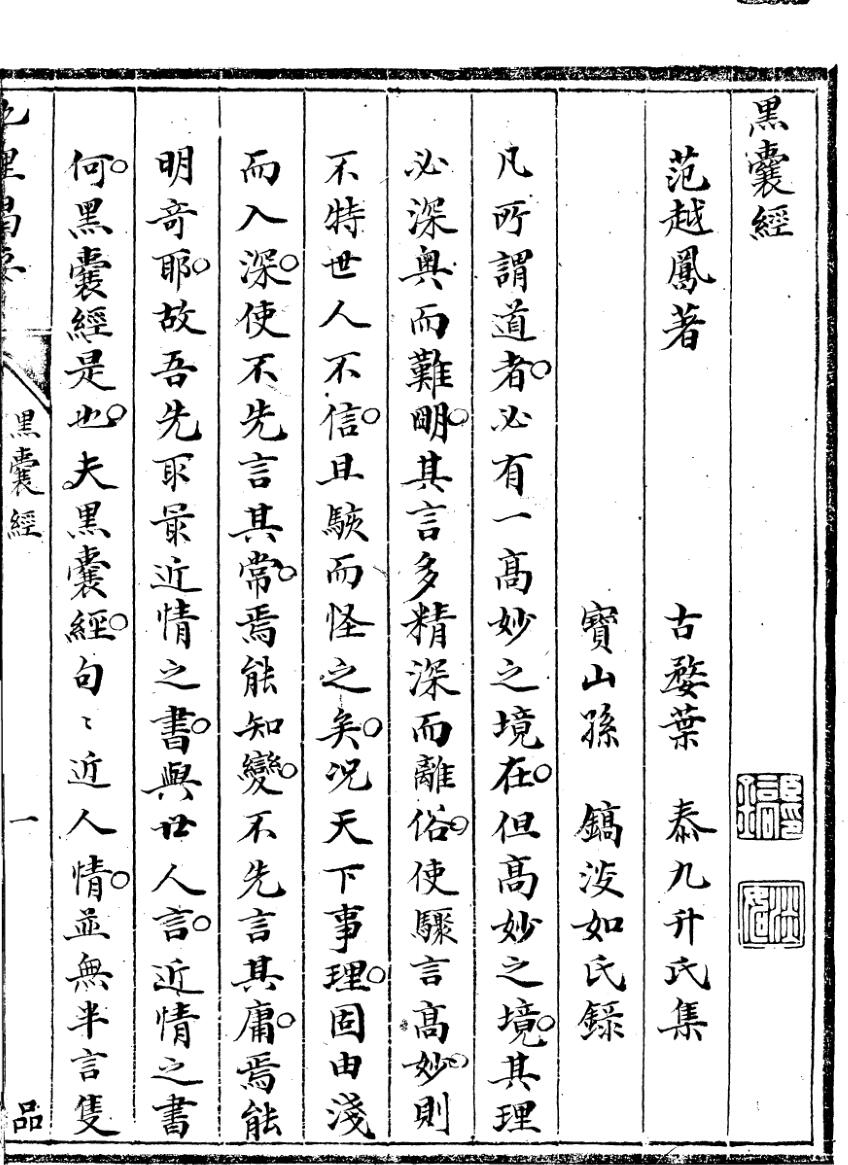 黑囊經
范越鳳著　古婺葉　泰九升氏集
寶山孫　鎬浚如氏錄
凡所謂道者。必有一高妙之境在。但高妙之境。其理
必深奥而難明。其言多精深而離俗。使驟言高妙。則
不特世人不信。且駭而怪之矣。况天下事理。固由淺
而入深。使不先言其常。焉能知變。不先言其庸。焉能
明竒耶。故吾先取最近情之書。與世人言。近情之書
何。黑囊經是也。夫黑囊經。句〻近人情。並無半言隻
黑囊經　一　品